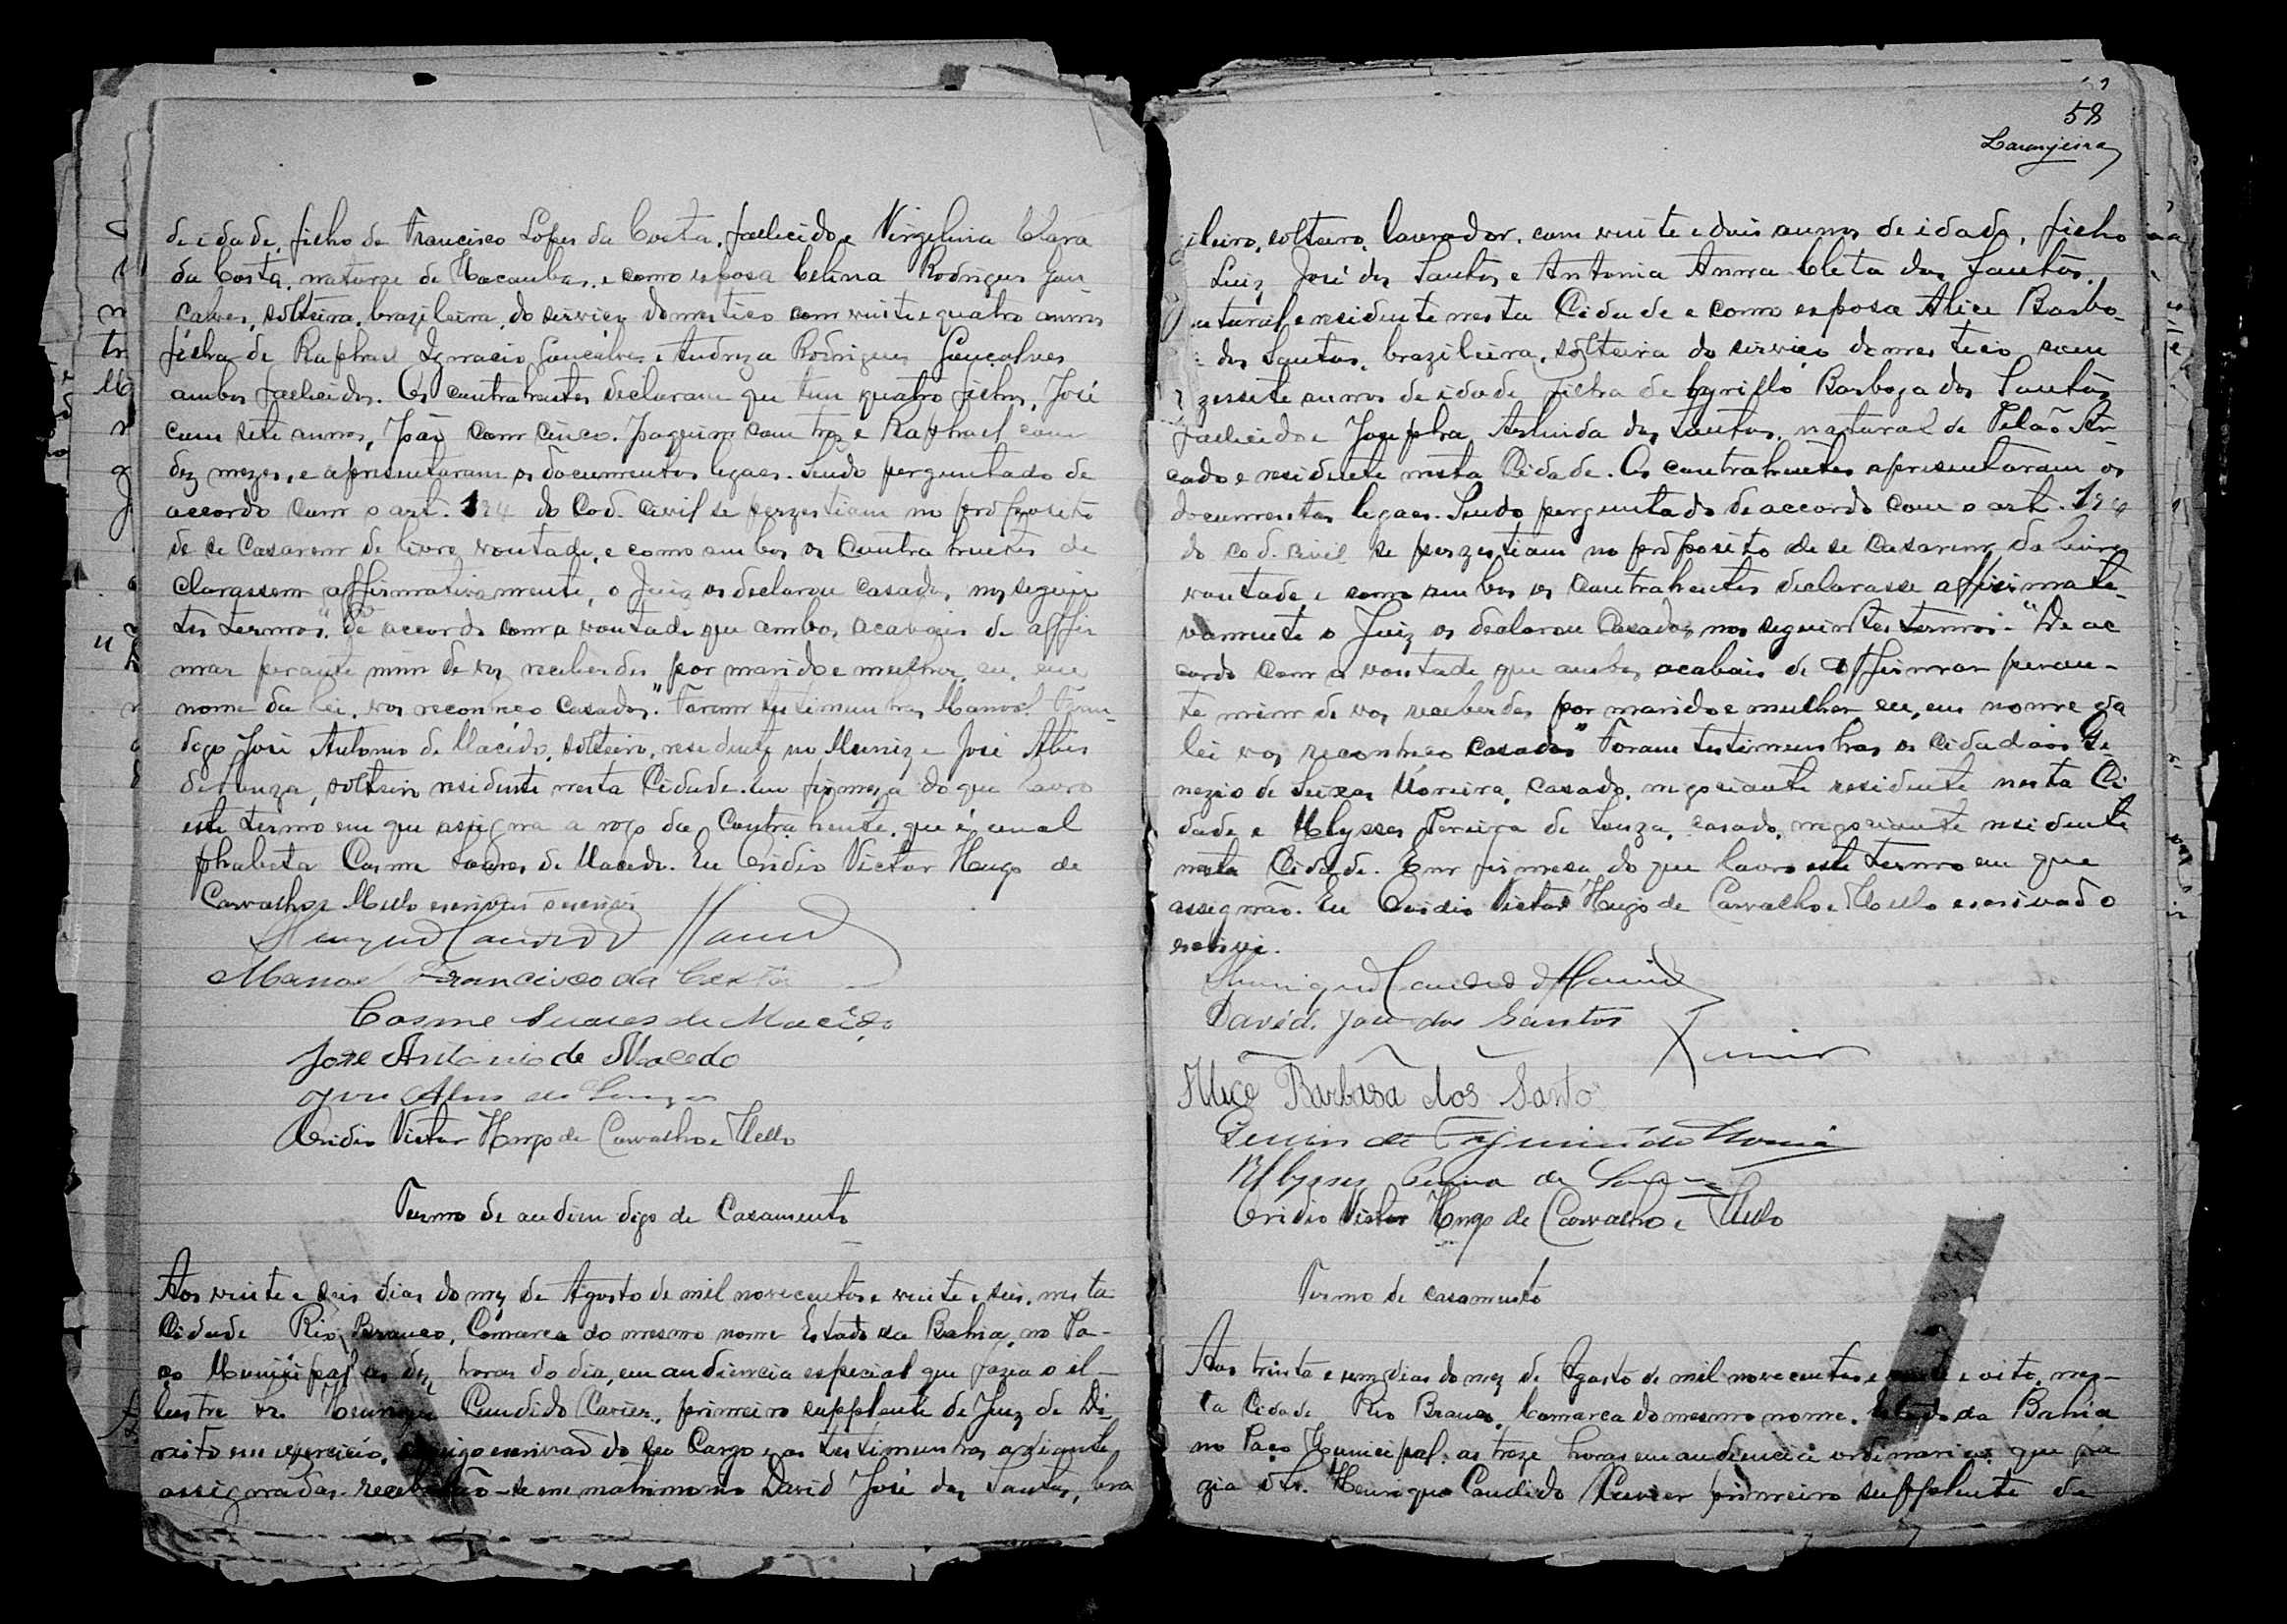 de idade, filho de Francisco Lopes da Costa, fallecido, e Virgelina Clara
da Costa, naturae de Macaubas, e como esposa Celina Rodrigues Gon
calves, solteira, brazileira, do serviço domestico com vinte e quatro annos
filha de Raphael Ignacio Gonçalves e Andreza Rodrigues Gonçalves
ambos fallecidos. Os contrahentes declaram que tem quatro filhos, José
com sete annos, João com cinco, Joaquim com tres e Raphael com
dez mezes, e apresentaram os documentos legaes. Sendo perguntado de
accordo com o art. 194 do Cod. Civil se perzestiam no proposito
de se casarem de livre vontade, e como ambos os contrahentes de
clarassem affirmativamente, o Juiz os declarou casados, nos seguin
tes termos: "De accordo com a vontade que ambos acabais de affir
mar perante mim de vos receberdes por marido e mulher, eu, em
nome da lei, vos reconheço casados." Foram testimunhas Manoel
digo José Antonio de Macêdo, solteiro, residente no Muniz e José Alves
de Souza, solteiro residente nesta Cidade. Em firmeza do que lavro
este termo em que assigna a rogo da contrahente, que é anal
phabeta Cosme Soares de Macedo. Eu Ovidio Victor Hugo de
Carvalho e Mello escrivão escrevi
Manoel Francisco da Costa
Cosme Suares de Macêdo
José Antonio de Macedo
José Alves de Souza
Ovidio Victor Hugo de Carvalho e Mello
Termo de audien digo de Casamento
Aos vinte e seis dias do mez de Agosto de mil novecentos e vinte e seis, nesta
Cidade Rio Branco, Comarca do mesmo nome Estado da Bahia, no Pa-
ço Municipal as dez horas do dia, em audiencia especial que fazia o il-
lustre sr. Henrique Candido Xavier, primeiro supplente de Juiz de Di-
reito em exercicio, comigo escrivão do seu Cargo e as testimunhas adiante
assignadas receberão-se em matrimonio David José dos Santos, bra
58
Laranjeira
zileiro, solteiro, lavrador, com vinte e dois annos de idade, filho
Luiz José dos Santos e Antonia Anna Cleta dos Santos,
natural e residente nesta Cidade e como esposa Alice Barbo-
dos Santos, brazileira, solteira do serviço domestico com
zessete annos de idade filha de Cyrillo Barboza dos Santos
fallecido e Josepha Arlinda dos Santos, natural de Pilão Ar-
cado e residente nesta Cidade. Os contrahentes apresentaram os
documentos legaes. Sendo perguntado de accordo com o art. 194
do cod. civil se perzestiam no proposito de se casarem de livre
vontade, e como ambos os contrahentes declarasse affirmate-
vamente o Juiz os declarou Casados, nos seguintes termos: "De ac
cordo com a vontade que ambos acabais de affirmar peran-
te mim de vos receberdes por marido e mulher eu, em nome da
lei vos reconheço casados" Foram testimunhas os cidadãos Ge
nezio de Seixas Moreira, casado, negociante residente nesta Ci
dade e Ulysses Pereira de Souza, casado, negociante residente
nesta Cidade. Em firmesa do que lavro este termo em que
assignão. Eu Ovidio Victor Hugo de Carvalho e Mello escrivão o
escrevi.
David José dos Santos
Alice Barbosa dos Santos
Ulysses Pereira de Souza
Ovidio Victor Hugo de Carvalho e Mello
Termo de casamento
Aos trinta e um dias do mez de Agosto de mil novecentos e vinte e oito, nes-
ta Cidade Rio Branco, Comarca do mesmo nome, Estado da Bahia
no Paço Municipal, as treze horas em audiencia ordinaria que fa
zia o Sr. Henrique Candido Xavier primeiro supplente de